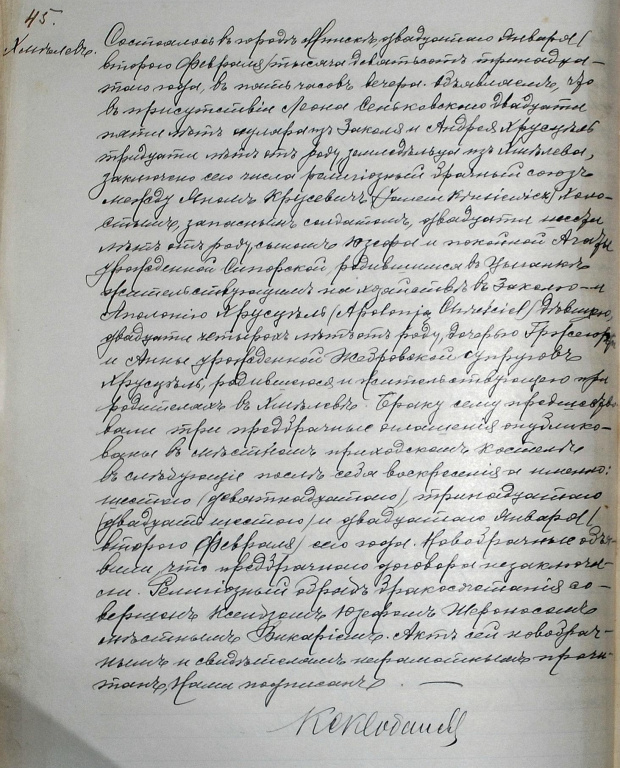 45.
Хмѣлевъ.
Состоялось въ городѣ Минскѣ, двадцатаго Января /
второго Февраля / тысяча девятьсотъ тринадца-
таго года, въ пять часовъ вечера. Объявляемъ, что
въ присутствіи Леона Сеньковскаго двадцати
пяти лѣтъ столяра изъ Заколя и Андрея Хрусцѣль
тридцати лѣтъ отъ роду земледѣльца изъ Хмѣлева,
заключенъ сего числа религіозный брачный союзъ
между Яномъ Крусевичъ (Janem Krusiewicz) холо-
стымъ, запаснымъ солдатомъ, двадцати шести
лѣтъ отъ роду, сыномъ Юзефа и покойной Агаты
урожденной Сикорской, родившимся въ
жительствующимъ на въ Заколю и
Аполонію Хрусцѣль (Apolonja Chruściel) дѣвицею,
двадцати четырехъ лѣтъ отъ роду, дочерью
и Анны урожденной Жебровской супруговъ
Хрусцѣль, родившеюся и жительствующею при
родителяхъ въ Хмѣлевѣ. Браку сему предшество-
вали три предбрачныя оглашенія опублико-
ваны въ мѣстномъ приходскомъ костелѣ
въ слѣдующія послѣ себя воскресенія а именно:
шестого (девятнадцатаго), тринадцатаго
(двадцать шестого) и двадцатаго Января /
второго Февраля / сего года. Новобрачные объя-
вили, что предбрачнаго договора не заключа-
ли. Религіозный обрядъ бракосочетанія со-
вершонъ Ксендзомъ Юзефомъ
мѣстнымъ Викаріемъ. Актъ сей новобрач-
нымъ и свидѣтелямъ неграмотнымъ прочи-
танъ, Нами подписанъ.